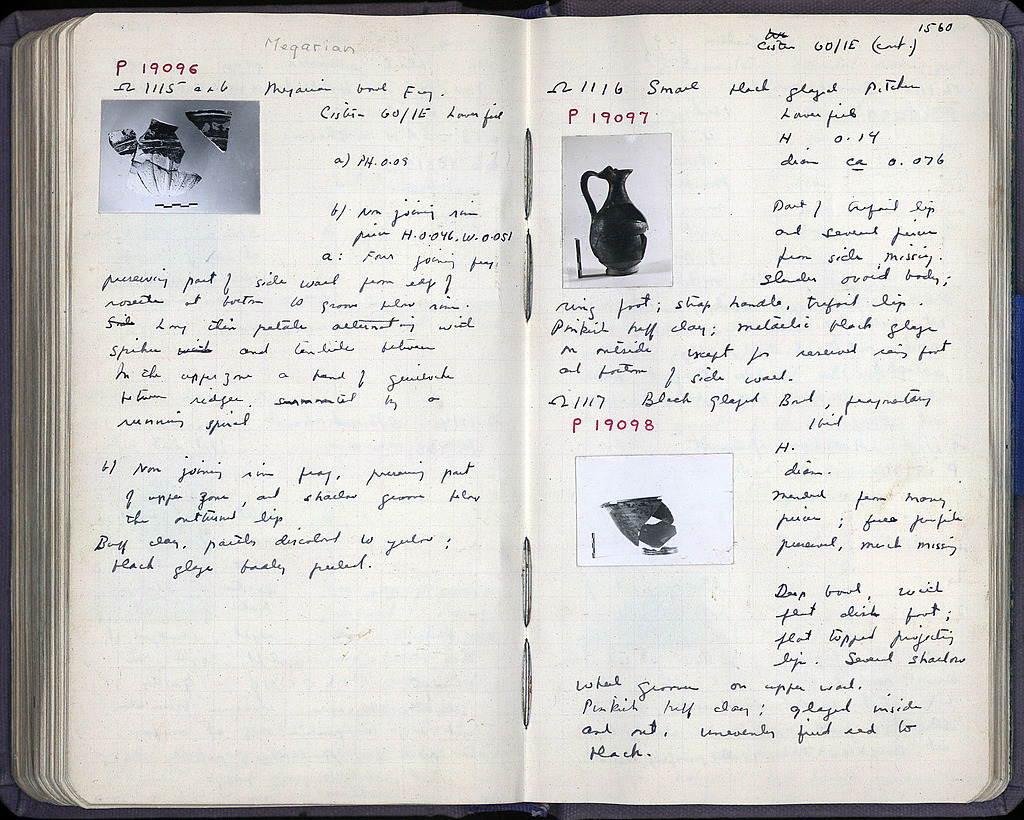 Megarian
P 19096
Ω 1115 a + b Megarian bowl Frag.
Cistern 60/1E Lower fill
a) PH. 0.09
b) Non joining rim
piece H. 0.046, W. 0.051
a: Four joining frag.
preserving part of side wall from edge of
rosette at bottom to groove below rim.
Long thin petals alternating with
spikes and tendrils between
In the upper zone a band of guilloche
between ridges, surmounted by a
running spiral
b) Non joining rim frag, preserving part
of upper zone, and shallow groove below
the outturned lip
Buff clay, partly discolored to yellow;
black glaze badly peeled.
1560
Cistern 60/1E (cont.)
Ω 1116 Small black glazed Pitcher
P 19097
Lower fill
H 0.14
diam ca 0.076
Part of trefoil lip
and several pieces
from side missing.
Slender ovoid body;
ring foot; strap handle, trefoil lip.
Pinkish buff clay; metallic black glaze
on outside except for reserved ring foot
and bottom of side wall.
Ω 1117 Black glazed Bowl, fragmentary
P 19098
Ibid
H.
diam.
Mended from many
pieces; full profile
preserved, much missing
Deep bowl, with
flat disk foot;
flat topped projecting
lip. Several shallow
wheel grooves on upper wall.
Pinkish buff clay; glazed inside
and out, unevenly fired red to
black.